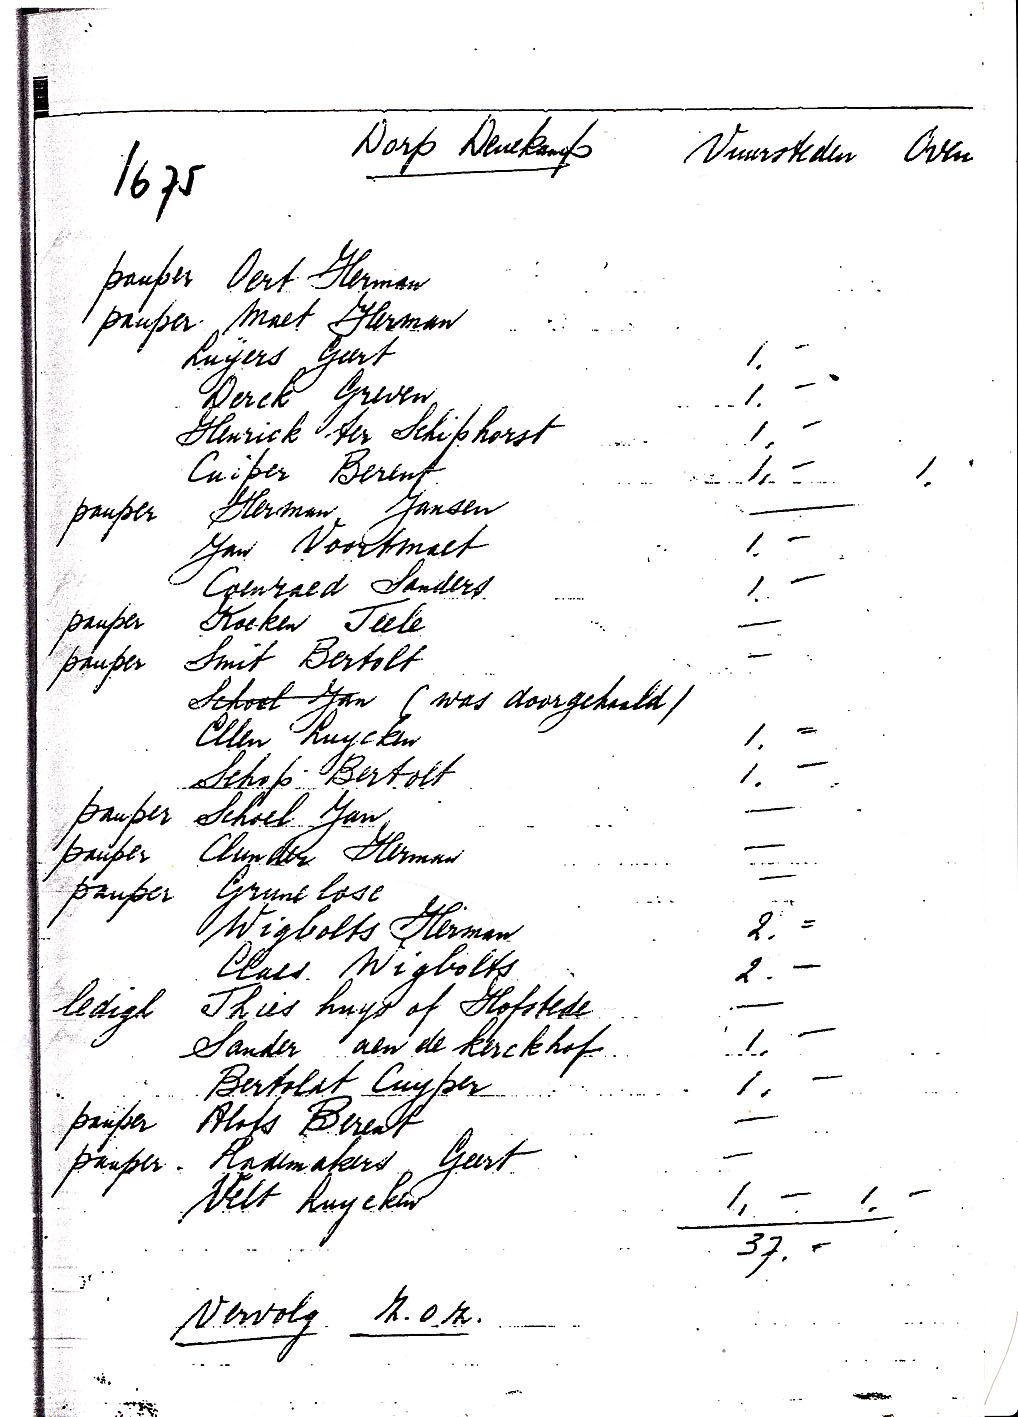 1675 Dorp Denekamp Vuursteden Oven
pauper Oert Herman
pauper Maet Herman
Luÿers Geert 1. –
Derck Greven 1. –
Henrick ter Schiphorst 1. –
Cuiper Berent 1. – 1.
pauper Herman Jansen —
Jan Voortmaet 1. –
Coenraed Sanders 1. –
pauper Koeken Teele —
pauper Smit Bertolt –
Schoel Jan (was doorgehaald)
Ellen Luycken 1. =
Schop Bertolt 1. –
pauper Schoel Jan —
pauper Clumder Herman —
pauper Grunelose —
Wigbolts Herman 2. =
Claes Wigbolts 2. –
ledigh Thies huys of Hofstede —
Sander aen de kerckhof 1. –
Bertoldt Cuyper 1. –
pauper Alofs Berent —
pauper. Rademakers Geert –
Velt Luycken 1. – 1. –
37. –
Vervolg z.o.z.